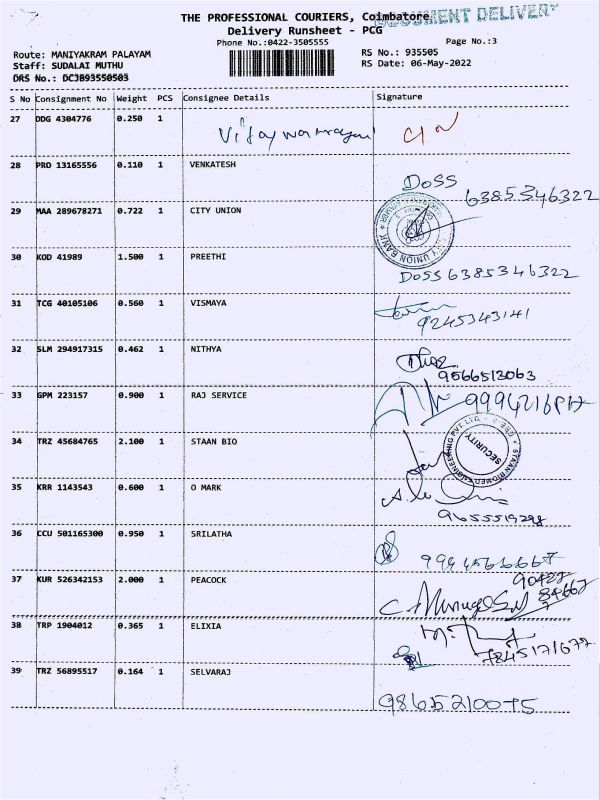 THE PROFESSIONAL COURIERS, Coimbatore
DOCUMENT DELIVERY
Delivery Runsheet - PCG
Phone No.:0422-3505555
Page No.:3
Route: MANIYAKRAM PALAYAM
RS No.: 935505
Staff: SUDALAI MUTHU
RS Date: 06-May-2022
DRS No.: DCJB93550503
S No Consignment No Weight PCS Consignee Details Signature
27 DDG 4304776 0.250 1
28 PRO 13165556 0.110 1 VENKATESH
DOSS
6385346322
29 MAA 289678271 0.722 1 CITY UNION
CITY UNION BANK
30 KOD 41989 1.500 1 PREETHI
DOSS 6385346322
31 TCG 40105106 0.560 1 VISMAYA
9245343141
32 SLM 294917315 0.462 1 NITHYA
9566513063
33 GPM 223157 0.900 1 RAJ SERVICE
34 TRZ 45684765 2.100 1 STAAN BIO
STAAN BIOMED ENGINEERING PVT LTD
SECURITY
35 KRR 1143543 0.600 1 O MARK
9655519298
36 CCU 501165300 0.950 1 SRILATHA
37 KUR 526342153 2.000 1 PEACOCK
38 TRP 1904012 0.365 1 ELIXIA
7845171677
39 TRZ 56895517 0.164 1 SELVARAJ
9865210075